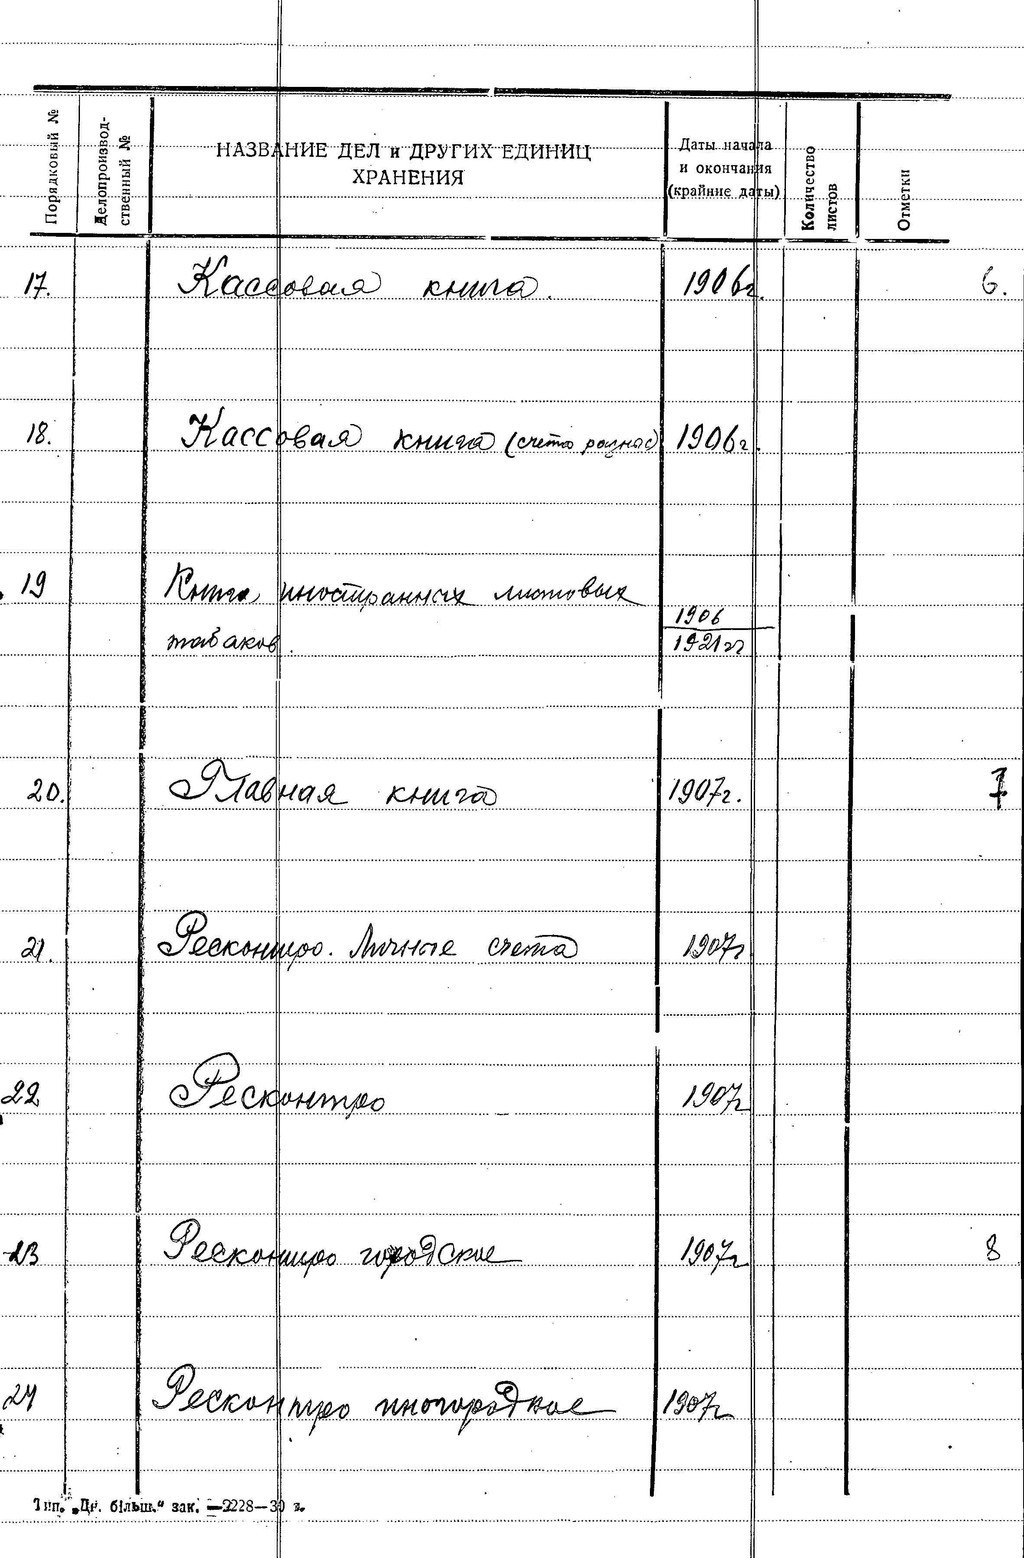 Порядковый №
Делопроизвод-
ственный №
НАЗВАНИЕ ДЕЛ и ДРУГИХ ЕДИНИЦ
ХРАНЕНИЯ
Даты начала
и окончания
(крайние даты)
Количество
листов
Отметки
17. Кассовая книга. 1906г. 6.
18. Кассовая книга (счета разные) 1906г.
19 Книга иностранных листовых
табаков. 1906
1921гг
20. Главная книга 1907г. 7
21. Ресконтро. Личные счета 1907г
22 Ресконтро 1907г
23 Ресконтро городское 1907г 8
24 Ресконтро иногородное 1907г
Тип. „Др. більш.“ зак. —2228—30 г.